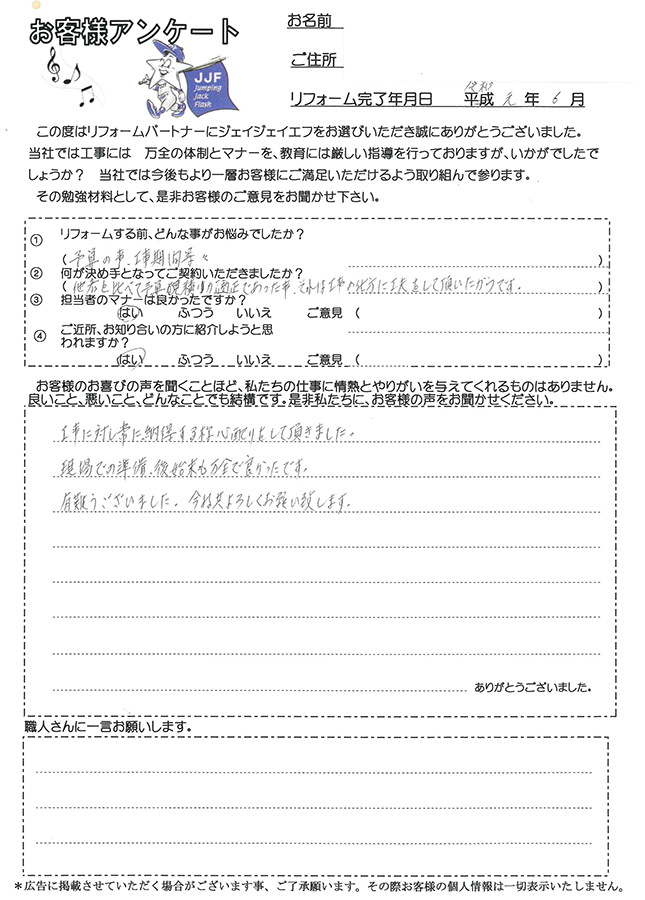 お客様アンケート
JJF
Jumping
Jack
Flash
お名前
ご住所
令和
リフォーム完了年月日 平成 元 年 6 月
この度はリフォームパートナーにジェイジェイエフをお選びいただき誠にありがとうございました。
当社では工事には 万全の体制とマナーを、教育には厳しい指導を行っておりますが、いかがでしたで
しょうか? 当社では今後もより一層お客様にご満足いただけるよう取り組んで参ります。
その勉強材料として、是非お客様のご意見をお聞かせ下さい。
① リフォームする前、どんな事がお悩みでしたか?
(予算の事、工事期間等々 )
② 何が決め手となってご契約いただきましたか?
(他社と比べて予算見積りが適正であった事、それは工事の仕方に工夫をして頂いたからです。 )
③ 担当者のマナーは良かったですか?
はい ふつう いいえ ご意見 ( )
④ ご近所、お知り合いの方に紹介しようと思
われますか?
はい ふつう いいえ ご意見 ( )
お客様のお喜びの声を聞くことほど、私たちの仕事に情熱とやりがいを与えてくれるものはありません。
良いこと、悪いこと、どんなことでも結構です。是非私たちに、お客様の声をお聞かせください。
工事に対し常に納得する様心配りをして頂きました。
現場での準備、後始末も万全で良かったです。
有難うございました。今後共よろしくお願い致します。
ありがとうございました。
職人さんに一言お願いします。
*広告に掲載させていただく場合がございます事、ご了承願います。その際お客様の個人情報は一切表示いたしません。